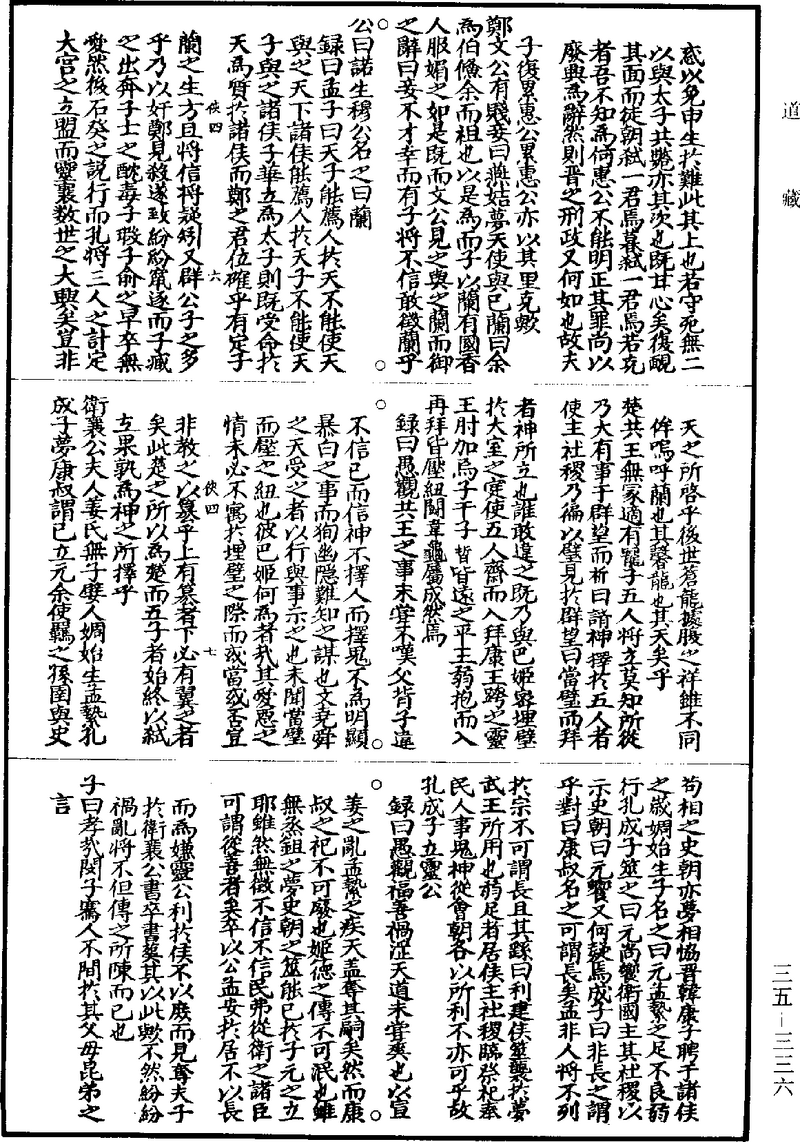 道藏
惑以免申生於難此其上也若守死無二
以與太子共斃亦其次也既甘心矣復覥
其面而從朝弒一君焉暮弒一君焉若克
者吾不知為何惠公不能明正其罪尚以
廢興為辭然則晉之刑政又何如也故夫
子復累惠公累惠公亦以其里克歟
鄭文公有賤妾曰燕姞夢天使與己蘭曰余
為伯鯈余而祖也以是為而子以蘭有國香
人服媚之如是既而文公見之與之蘭而御
之辭曰妾不才幸而有子將不信敢徵蘭乎
公曰諾生穆公名之曰蘭
○錄曰孟子曰天子能薦人於天不能使天
與之天下諸侯能薦人於天子不能使天
子與之諸侯子華立為太子則既受命於
天為質於諸侯而鄭之君位確乎有定子
俠四 六
蘭之生方且將信將疑矧又群公子之多
乎乃以奸鄭見殺遂致紛紛竄逐而子臧
之出奔子士之酖毒子瑕子俞之早卒無
愛然後石癸之說行而孔將三人之計定
大宮之立盟而靈襄数世之大興矣豈非
天之所啓乎後世蒼龍據腹之祥雖不同
侔嗚呼蘭也其馨龍也其天矣乎
楚共王無冢適有寵子五人將立莫知所從
乃大有事于群望而祈曰請神擇於五人者
使主社稷乃徧以璧見於群望曰當璧而拜
者神所立也誰敢違之既乃與巴姬密埋璧
於大室之庭使五人齋而入拜康王跨之靈
王肘加焉子干子晳皆遠之平王弱抱而入
再拜皆壓紐鬬韋龜屬成然焉
○錄曰愚觀共王之事未嘗不嘆父背子違
不信己而信神不擇人而擇鬼不為明顯
暴白之事而狥幽隱難知之謀也文堯舜
之天受之者以行與事示之也未聞當璧
而壓之紐也彼巴姬何為者哉其愛惡之
情未必不寓於埋璧之際而或當或否豈
俠四 七
非教之以簒乎上有簒者下必有翼之者
矣此楚之所以為楚而五子者始終以弒
立果孰為神之所擇乎
衛襄公夫人姜氏無子嬖人婤姶生孟縶孔
成子夢康叔謂己立元余使羈之孫圉與史
苟相之史朝亦夢相協晋韓康子聘于諸侯
之歲婤姶生子名之曰元孟縶之足不良弱
行孔成子筮之曰元尚饗衛國主其社稷以
示史朝曰元饗又何疑焉成子曰非長之謂
乎對曰康叔名之可謂長矣孟非人將不列
於宗不可謂長且其繇曰利建侯筮襲於夢
武王所用也弱足者居侯主社稷臨祭祀奉
民人事鬼神從會朝各以所利不亦可乎故
孔成子立靈公
○錄曰愚觀福善禍淫天道未嘗爽也以宣
姜之亂孟縶之疾天蓋奪其嗣矣然而康
叔之祀不可廢也姬德之傳不可泯也雖
無烝鉏之夢史朝之筮能已於子元之立
耶雖然無徵不信不信民弗從衛之諸臣
可謂從善者矣卒以公孟安於居不以長
而為嫌靈公利於侯不以廢而見奪夫子
於衛襄公書卒書葬其以此歟不然紛紛
禍亂將不但傳之所陳而已也
子曰孝哉閔子騫人不間於其父母昆弟之
言
三五—三三六